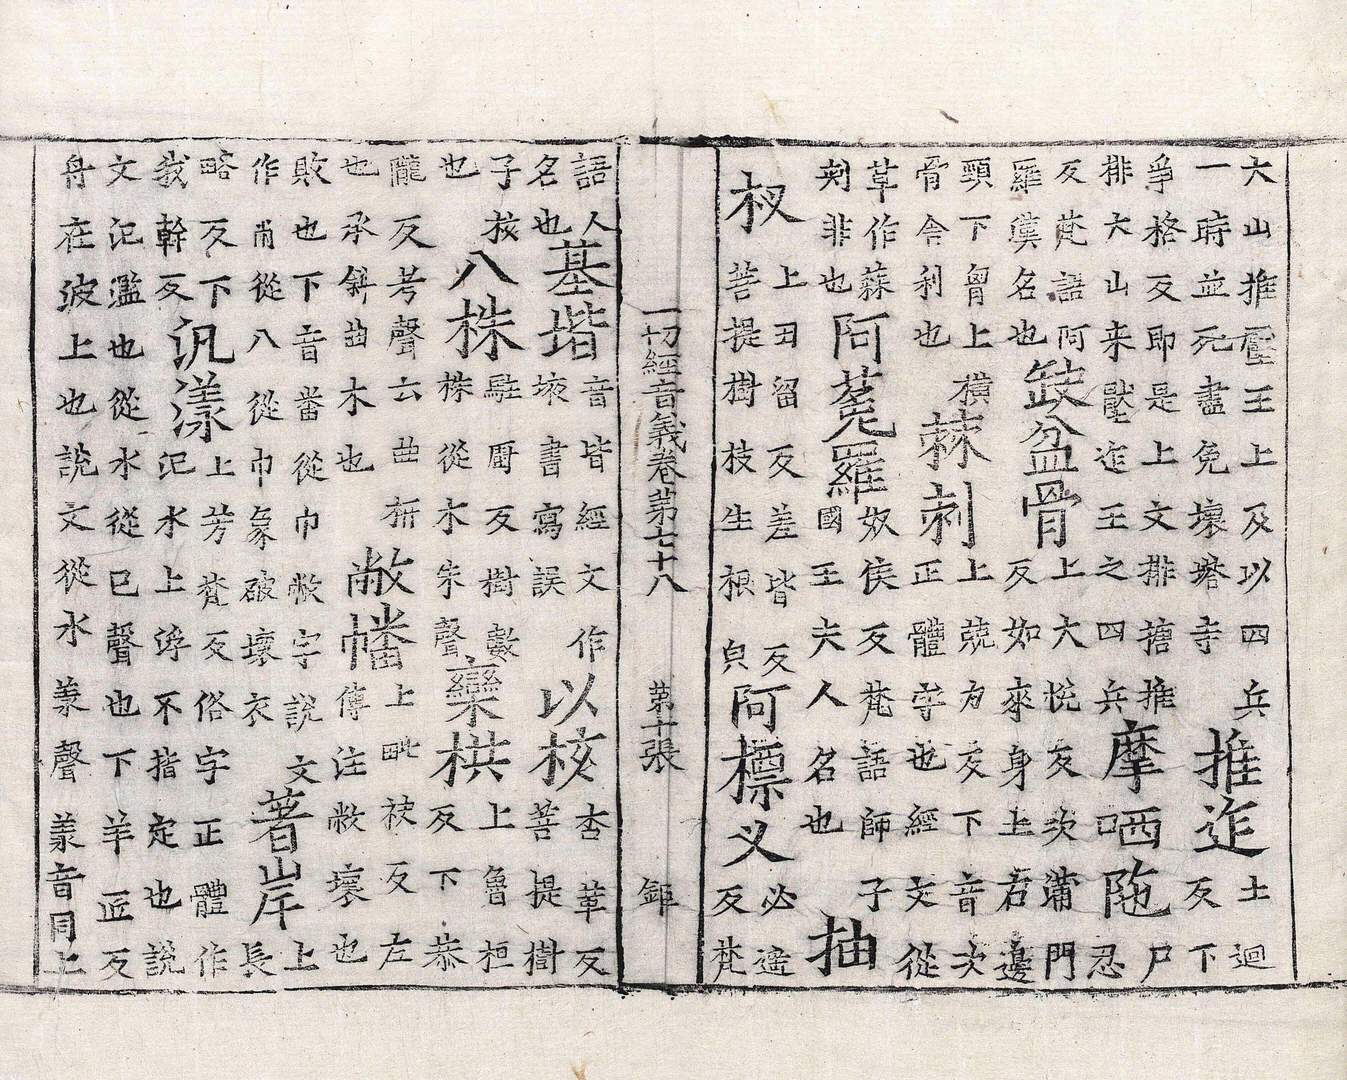 大山推壓王上及以四兵
一時並死盡免壞塔寺
推迮
土迴
反下
爭格反即是上文排搪推
排大山来壓迮王之四兵
摩哂陁
尸
忍
反梵語阿
羅漢名也
缺盆骨
上犬悅反次蒲門
反如來身上右邊
頸下胷上橫
骨舍利也
棘刺
上兢力反下音次
正體字也經文從
草作蕀
刾非也
阿菟羅
奴侯反梵語師子
國王夫人名也
抽
杈
上丑留反差皆反
菩提樹枝生根皃
阿摽义
必遥
反梵
一切經音義卷第七十八 第十張 鉅
語人
名也
基堦
音皆經文作
垓書寫誤
以核
杏革反
菩提樹
子核
也
八株
駐厨反樹數
株從木朱聲
欒栱
上魯桓
反下恭
隴反考聲云曲枅
也承斜曲木也
敝幡
上毗袂反左
傳注敝壞也
敗也下音番從巾敝字說文
作㡀從八從巾象破壞衣
著岸
上
長
略反下
我幹反
汎漾
上芳梵反俗字正體作
氾水上浮不指定也說
文氾濫也從水從巳聲也下羊匠反
舟在波上也說文從水羕聲羕音同上